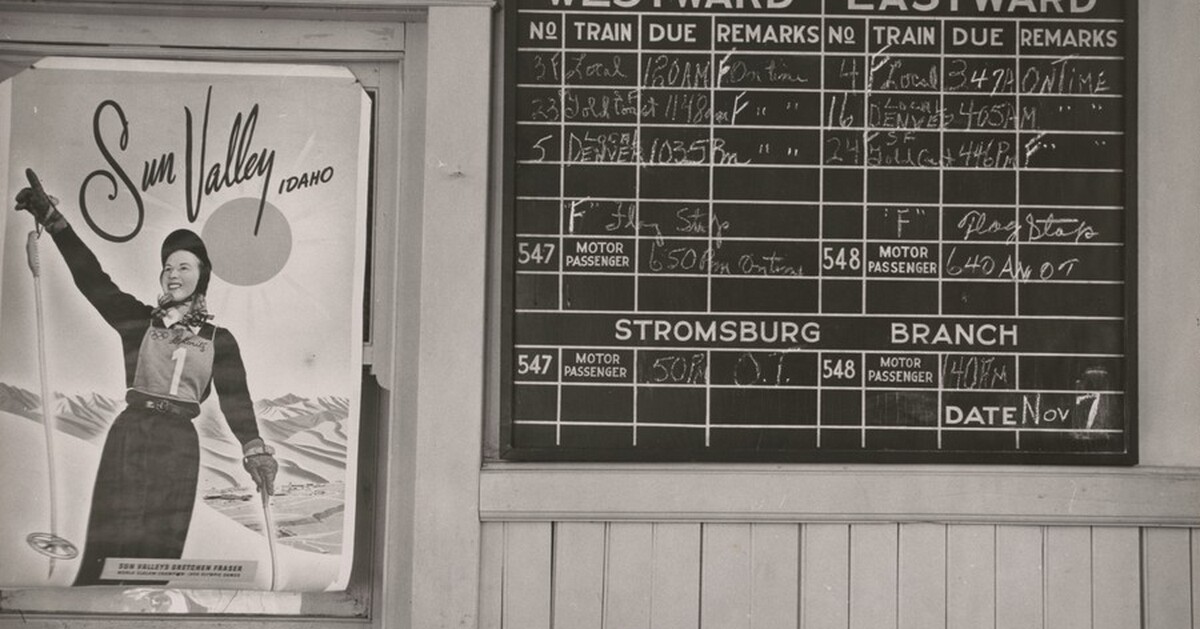 Sun Valley IDAHO
1
SUN VALLEY'S GRETCHEN FRASER
WESTWARD EASTWARD
No TRAIN DUE REMARKS No TRAIN DUE REMARKS
Local 120AM F On time 4 F Local 347A ON TIME
23 Gold Coast 1148am F " " 16 LOCAL DENVER 405AM " "
5 LOCAL DENVER 1035Pm " " 24 S.F. Gold Cast 446PM F " "
"F" Flag Stop "F" Flag Stop
547 MOTOR PASSENGER 650Pm Ontime 548 MOTOR PASSENGER 640AM OT
STROMSBURG BRANCH
547 MOTOR PASSENGER O.T. 548 MOTOR PASSENGER 140PM
DATE Nov 7